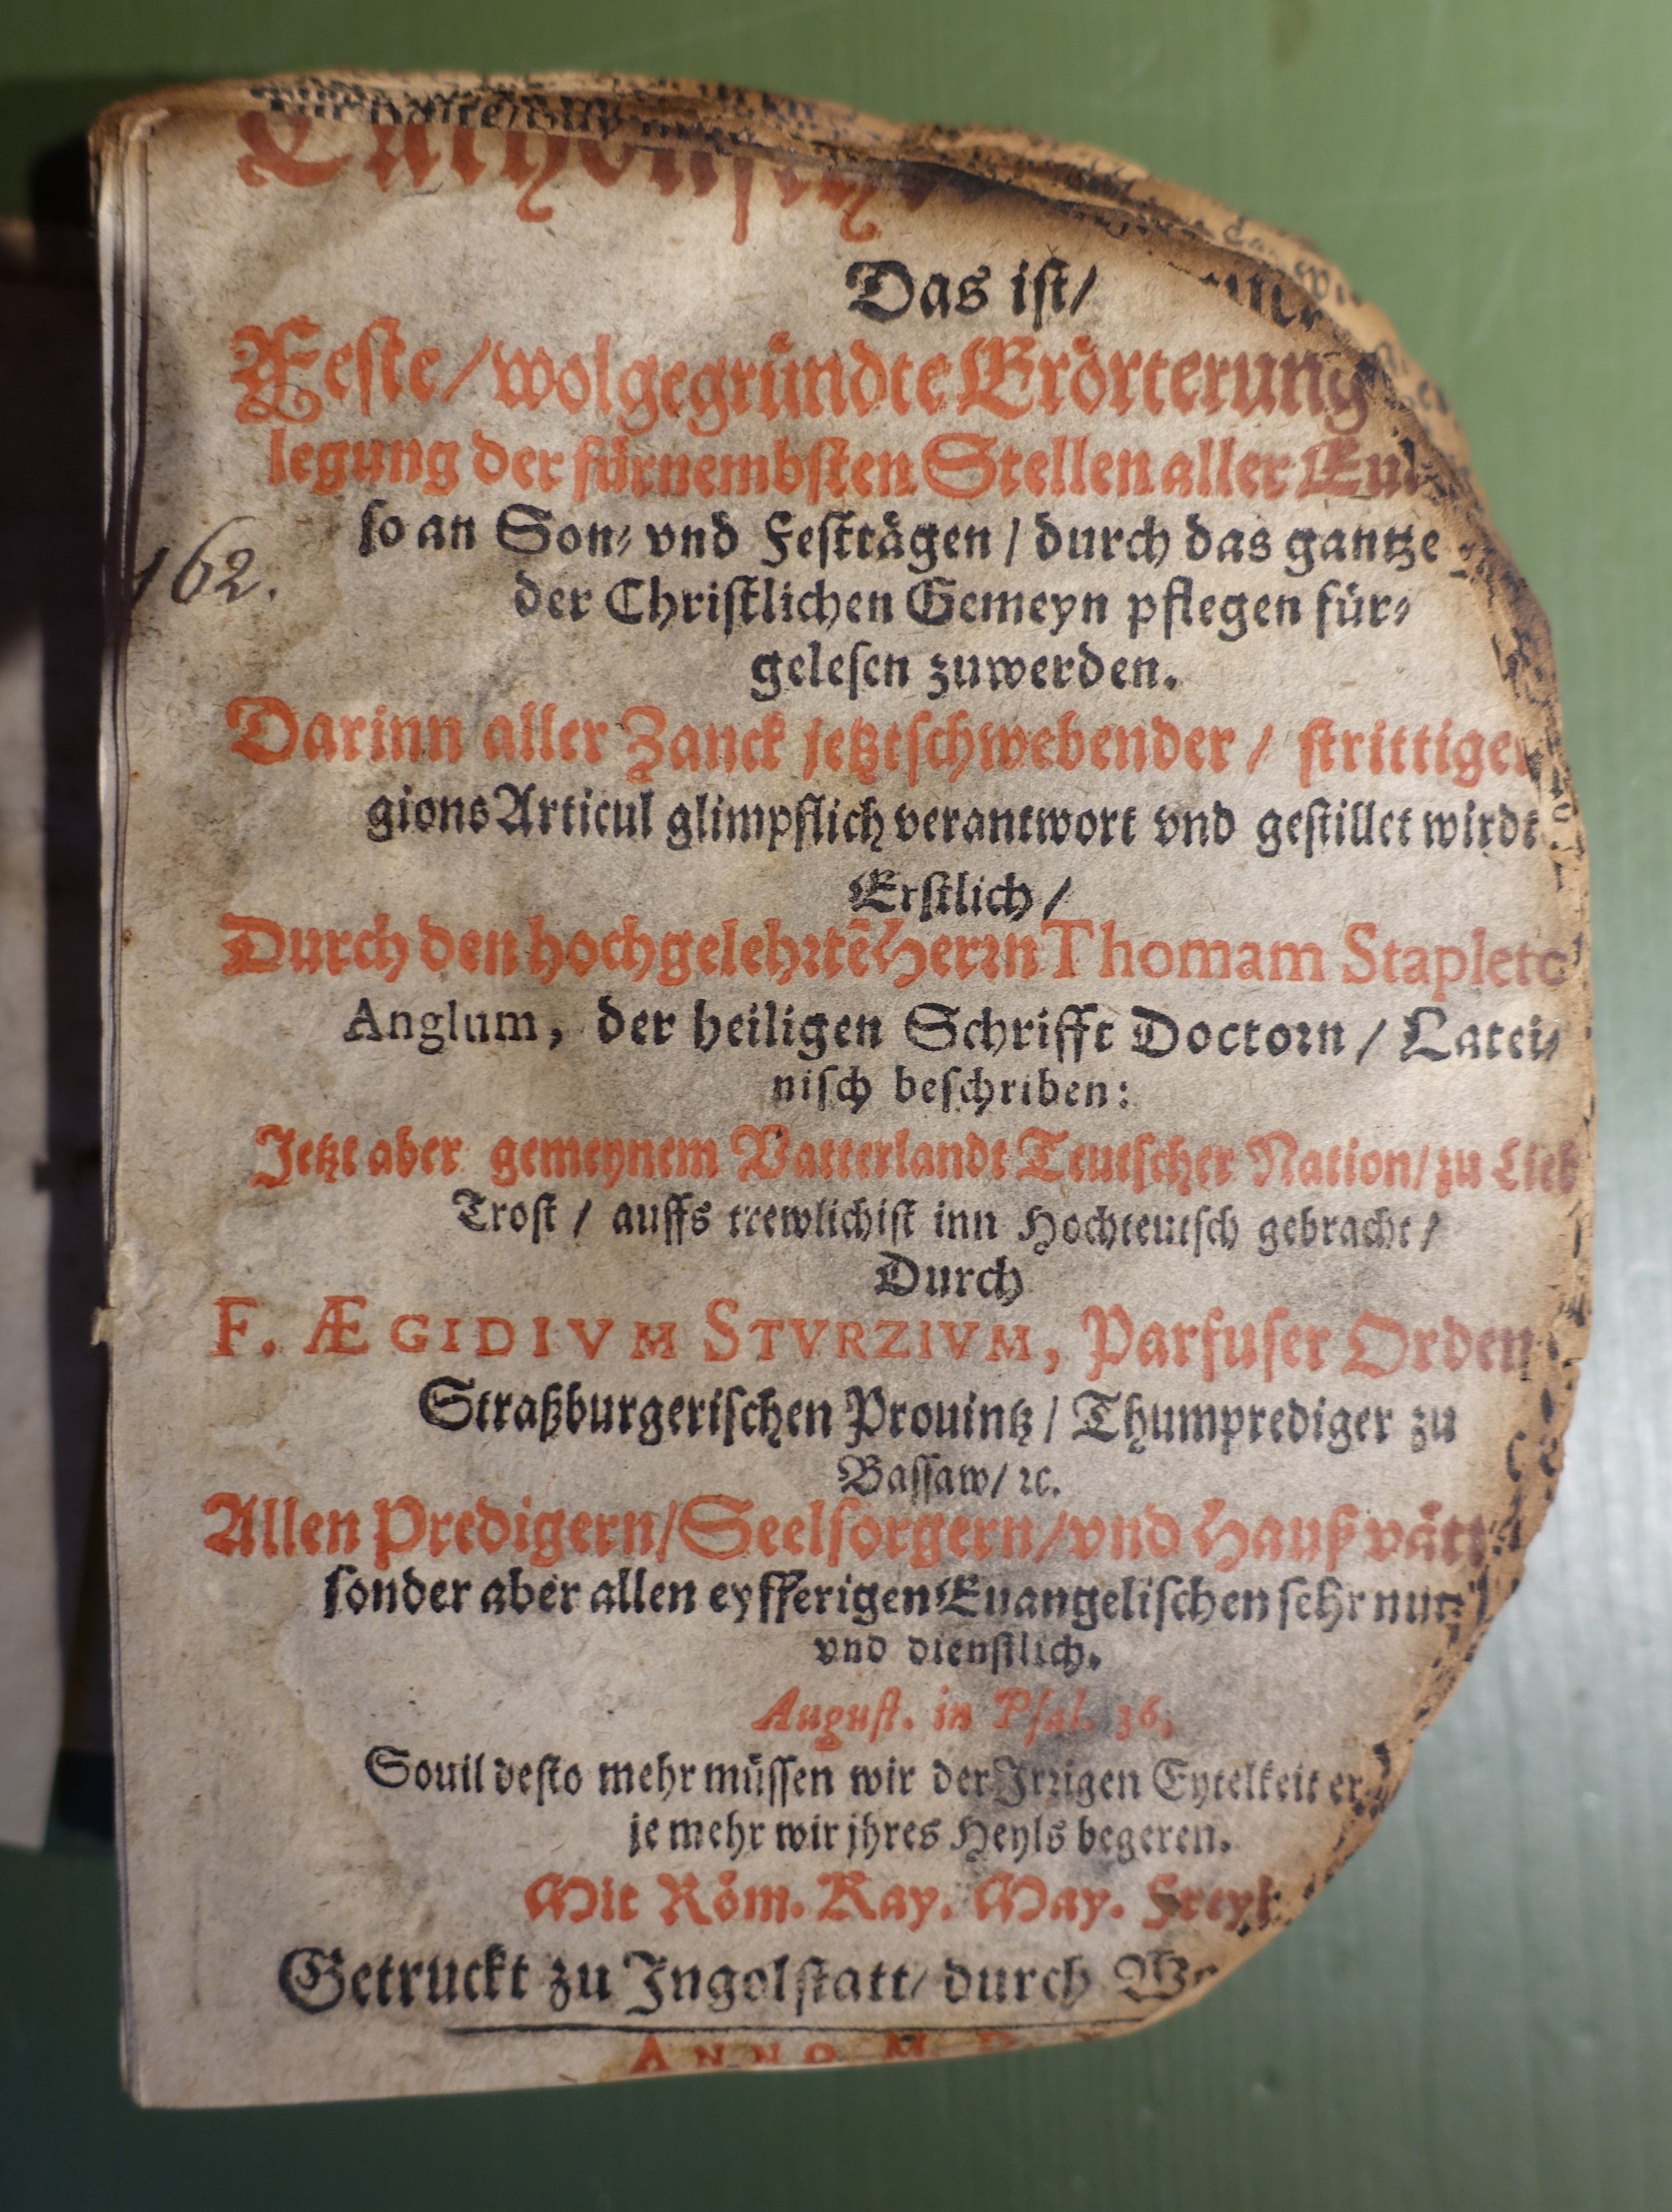 Catholisch
Das ist/
Feste/ wolgegründte Erörterung
legung der fürnembsten Stellen aller
so an Son- vnd Festtägen / durch das gantze
der Christlichen Gemeyn pflegen für-
gelesen zuwerden.
Darinn aller Zanck jetztschwebender / strittigen
gions Articul glimpflich verantwort vnd gestillet wirdt
162.
Erstlich /
Durch den hochgelehrtē Herrn Thomam Stapleto
Anglum, der heiligen Schrifft Doctorn / Latei-
nisch beschriben:
Jetzt aber gemeynem Vatterlandt Teutscher Nation/ zu Lieb
Trost / auffs trewlichist inn Hochteutsch gebracht /
Durch
F. ÆGIDIVM STVRZIVM, Parfuser Orden
Straßburgerischen Prouintz / Thumprediger zu
Bassaw/ ꝛc.
Allen Predigern/ Seelsorgern/ vnd Haußvätt
sonder aber allen eyfferigen Euangelischen sehr
vnd dienstlich.
August. in Psal. 36.
Souil desto mehr müssen wir der Jrrigen Eytelkeit er
je mehr wir jhres Heyls begeren.
Mit Röm. Kay. May. Freyh
Getruckt zu Jngolstatt/ durch Wo
ANNO M. D.